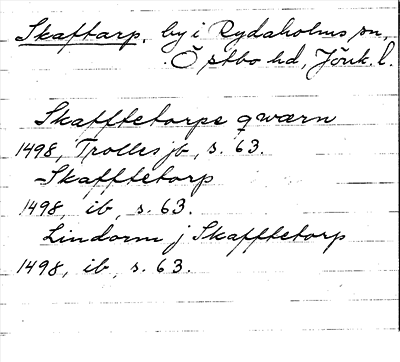 Skaftarp. by i Rydaholms sn,
Östbo hd, Jönk. l.
Skafftetorps qwærn
1498, Trolles jb, s. 63.
Skafftetorp
1498, ib, s. 63.
Lindorm j Skafftetorp
1498, ib, s. 63.